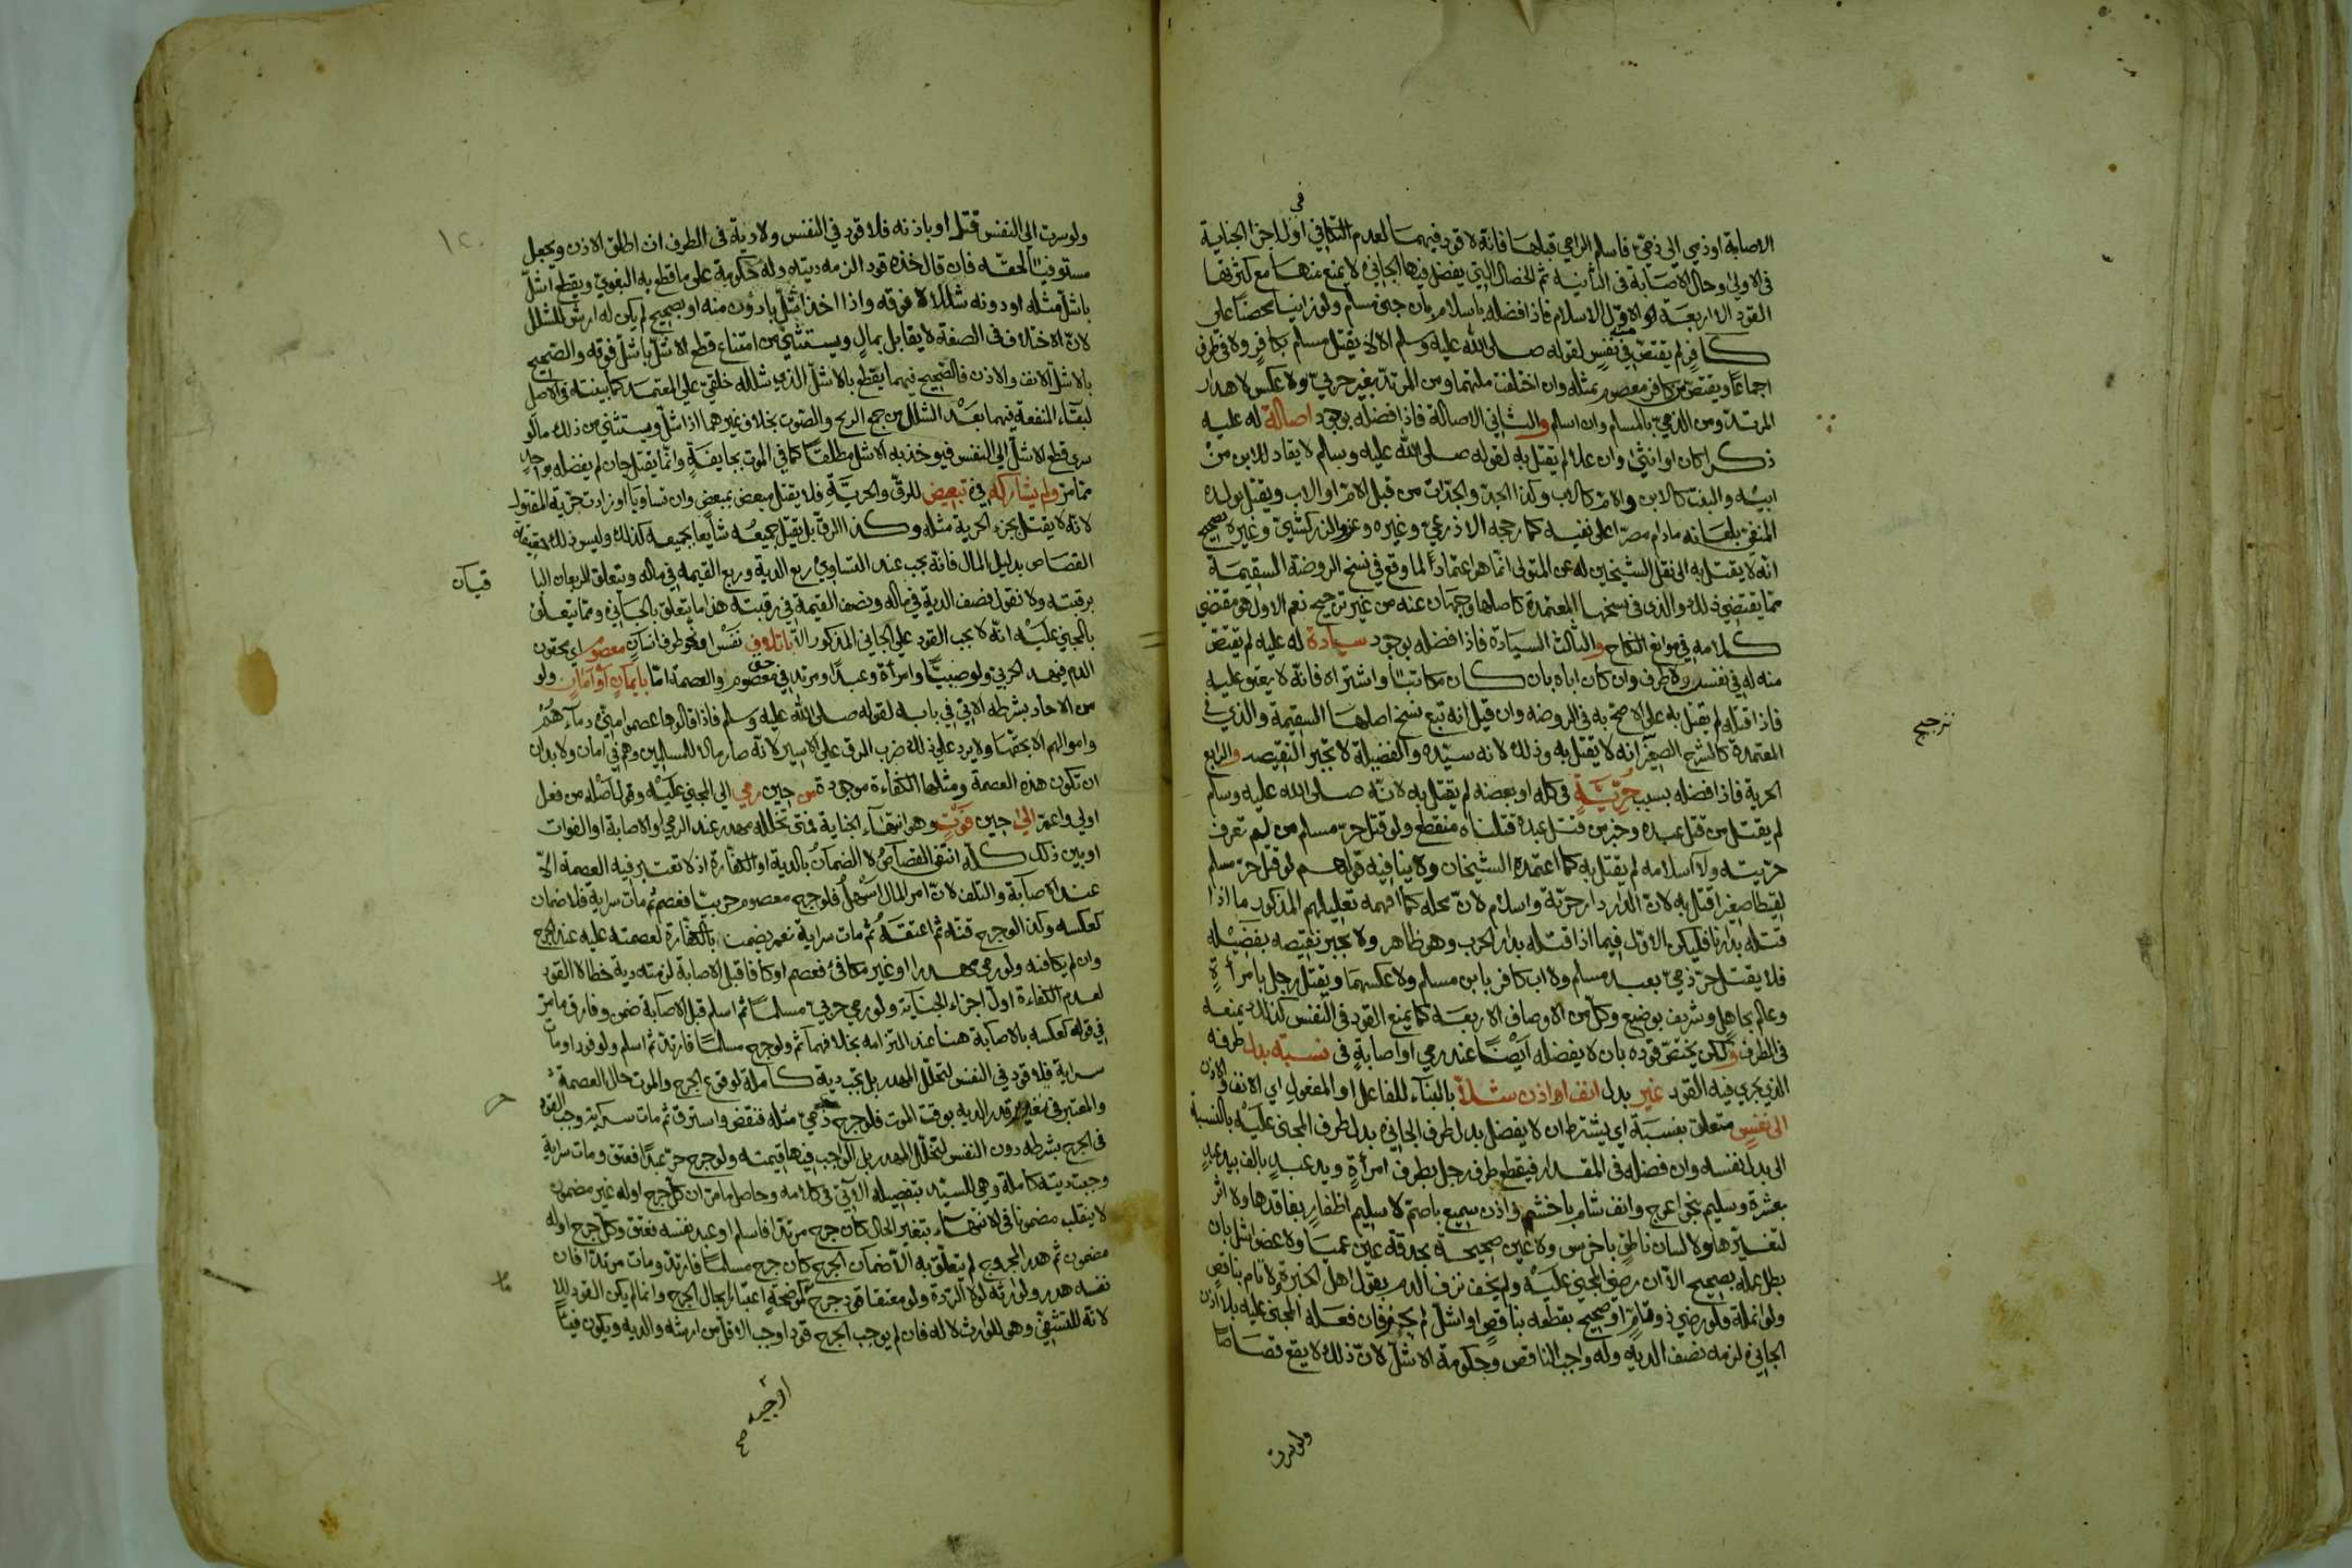 الاصابة اوذمي الى ذمي فاسلم الرامي قبلها فانه لا قود فيهما لعدم التكافي في اول اجزا الجناية
في الاولى وحال الاصابة في الثانية ثم الخصال التي يفضل فيها الجاني لا يمنع منها مع كثرتها
القود الا اربعة الاول الاسلام فاذا افضله باسلام بان جنى مسلم ولو زانيا محصنا على
كافر لم يقتص في نفس لقوله صلى الله عليه وسلم الا لا يقتل مسلم بكافر ولا في طرف
اجماعا ويقتص من كافر معصوم بمثله وان اختلفت ملتهما ومن المرتد بغير حربي ولا عكس لاهدار
المرتد ومن الذمي بالمسلم وان اسلم والثاني الاصالة فاذا فضله بوجود اصالة له عليه
ذكرا كان او انثى وان علا لم يقتل به لقوله صلى الله عليه وسلم لا يقاد للابن من
ابيه والبنت كالابن والام كالاب وكذا الجد والجدات من قبل الام او الاب ويقتل بولده
المنفي بلعانه مادام مصرا على نفيه كما رجحه الاذرعي وغيره وعزو الزركشي وغيره تصحيح
انه لا يقتل به الى نقل الشيخين له عن المتولى انما هو اعتمادا لما وقع في نسخ الروضة السقيمة
مما يقتضي ذلك والذى في نسخها المعتمدة كاصلها وجهان عنه من غير ترجيح نعم الاول هو مقتضى
كلامه في موانع النكاح والثالث السيادة فاذا فضله بوجود سيادة له عليه لم يقتص
منه له في نفس ولا طرف وان كان اباه بان كان مكاتبا واشتراه فانه لا يعتق عليه
فاذا قتله لم يقتل به على الاصح به في الروضه وان قيل انه تبع نسخ اصلها السقيمة والذي في
المعتمدة كالشرح الصغير انه لا يقتل به وذلك لانه سيده والفضيلة لا تجبر النقيصه والرابع
الحرية فاذا فضله بسبب حرية في كله او بعضه لم يقتل به لانه صلى الله عليه وسلم
لم يقتل من قتل عبده وخبر من قتل عبده قتلناه منقطع ولو قتل حر مسلم من لم تعرف
حريته ولا اسلامه لم يقتل به كما اعتمده الشيخان ولا ينافيه قولهم لو قتل حر مسلم
لقيطا صغيرا قتل به لان الدار دار حرية واسلام لان محله كما افهمه تعليلهم المذكور ما اذا
قتله بدارنا فليكن الاول فيما اذا قتله بدار الحرب وهو ظاهر ولا تجبر نقيصه بفضيله
فلا يقتل حر ذمي بعبد مسلم ولا اب كافر بابن مسلم ولا عكسهما ويقتل رجل بامرأة
وعالم بجاهل وشريف بوضيع وكل من الاوصاف الاربعة كما يمنع القود في النفس كذلك يمنعه
في الطرف ولكن يختص قوده بان لا يفضله ايضا عند رمي او اصابة في نسبة بدل طرفه
الذي يجري فيه القود غير بدل انف او اذن شلا بالبناء للفاعل او المفعول اي الانف والاذن
الى نفس متعلق بنسبة اي يشترط ان لا يفضل بدل طرف الجاني بدل طرف المجنى عليه بالنسبة
الى بدل نفسه وان فضله في المقدار فيقطع طرف رجل بطرف امرأة ويد عبد بالف بيد عبد
بعشرة وسليم بنحو اعرج وانف شام باخشم واذن سميع باصم لا سليم اظفار بفاقدها ولا اثر
لتغييرها ولا لسان ناطق باخرس ولا عين صحيحة بحدقة عين عميا ولا عضو اشل بان
بطل عمله بصحيح الا ان رضي المجني عليه ولم يخف نزف الدم بقول اهل الخبرة ولا تام بناقص
ولو انملة فلو رضي ذو تمام او صحيح بقطعه بناقص او اشل لم يجز فان فعله المجنى عليه بلا اذن
الجاني لزمه نصف الديه وله واجب الناقص وحكومة الاشل لان ذلك لا يقع قصاصا
ترجيح
ولو سرت
١٢٠
ولو سرت الى النفس قتل او باذنه فلا قود في النفس ولا دية في الطرف ان اطلق الاذن ويجعل
مستوفيا لحقه فان قال خذه قودا لزمه ديته وله حكومة على ما قطع به البغوي ويقطع اشل
باشل مثله او دونه شللا لا فوقه واذا اخذ اشل بادون منه او بصحيح لم يكن له ارش للشلل
لان الاختلاف في الصفة لا يقابل بمال ويستثنى من امتناع قطع الاشل باشل فوقه والصحيح
بالاشل الانف والاذن فالصحيح فيهما يقطع بالاشل الذي شلله خلقي على المعتمد كما بينته في الاصل
لبقاء المنفعة فيهما بعد الشلل من جمع الريح والصوت بخلاف غيرهما اذا شل ويستثنى من ذلك ما لو
سرى قطع الاشل الى النفس فيوخذ به الاشل مطلقا كما في الموت بجايفة وانما يقتل جان لم يفضله بواحد
مما مر ولم يشاركه في تبعيض للرق والحرية فلا يقتل مبعض بمبعض وان تساويا او زادت حرية المقتول
لانه لا يقتل بجزء الحرية مثله وكذا الرق بل يقتل جميعه شايعا بجميعه كذلك وليس ذلك حقيقة
القصاص بدليل المال فانه يجب عند التساوي ربع الدية وربع القيمه في ماله ويتعلق الربعان الباقيان
برقبته ولا نقول نصف الدية في ماله ونصف القيمة في رقبته هذا ما يتعلق بالجاني ومما يتعلق
بالمجني عليه انه لا يجب القود على الجاني المذكور الا باتلاف نفس او نحو طرف انسان معصوم اي محقون
الدم فيهدر الحربي ولو صبيا وامرأة وعبدا ومرتد في حق معصوم والعصمة اما بايمان او امان ولو
من الاحاد بشرطه الاتي في بابه لقوله صلى الله عليه وسلم فاذا قالوها عصموا مني دماءهم
واموالهم الا بحقها ولا يرد على ذلك ضرب الرق على الاسير لانه صار مالا للمسلمين وهم في امان ولا بد ان
ان تكون هذه العصمة ومثلها الكفاءة موجودة من حين رمي الى المجني عليه وقول اصله من فعل
اولى واعم الى حين فوت وهو انتهاء الجناية فمتى تخلله مهدر عند الرمي او الاصابة او الفوات
او بين ذلك كله انتفى القصاص لا الضمان بالدية او الكفارة اذ لا تعتبر فيه العصمة الا
عند الاصابة والتلف لان امر المال اسهل فلو جرح معصوم حربيا فعصم ثم مات سراية فلا ضمان
كعكسه وكذا لو جرح قنه ثم اعتقه ثم مات سراية نعم يضمن بالكفارة لعصمته عليه عند الجرح
وان لم يكافئه ولو رمى مهدرا او غير مكافئ فعصم او كافا قبل الاصابة لزمته دية خطا لا القود
لعدم الكفاءة اول اجزاء الجناية ولو رمى حربي مسلما ثم اسلم قبل الاصابة ضمن وفارق ما مر
في قوله كعكسه بالاصابة هنا عند التزامه بخلافها ثم ولو جرح مسلما فارتد ثم اسلم ولو فورا ومات
سراية فلا قود في النفس لتخلل المهدر بل تجب دية كاملة لوقوع الجرح والموت حال العصمة
والمعتبر في تغير قدر الديه بوقت الموت فلو جرح ذمي مثله فنقض واسترق ثم مات سراية وجب القود
في الجرح بشرطه دون النفس لتخلل المهدر بل الواجب فيها قيمته ولو جرح حر عبدا فعتق ومات سراية
وجبت ديته كاملة وهي للسيد بتفصيله الاتي في كلامه وحاصل ما مر ان كل جرح اوله غير مضمون
لا ينقلب مضمونا في الانتهاء بتغير الحال كان جرح مرتدا فاسلم او عبد نفسه فعتق وكل جرح اوله
مضمون ثم هدر المجروح لم يتعلق به الا ضمان الجرح كان جرح مسلما فارتد ومات مرتدا فان
نفسه هدر ولوارثه لولا الردة ولو معتقا قود جرح كموضحة اعتبارا بحال الجرح وانما لم يكن القود للامام
لانه للتشفي وهو للوارث لا له فان لم يوجب الجرح قود اوجب الاقل من ارشه والديه ويكون فيئا